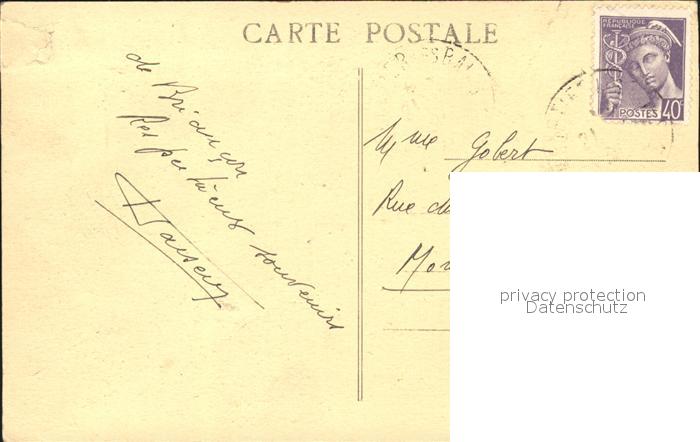 CARTE POSTALE
REPUBLIQUE
FRANÇAISE
POSTES 40
de Briançon
Respectueux souvenirs
Mme Gobert
Rue
privacy protection
Datenschutz